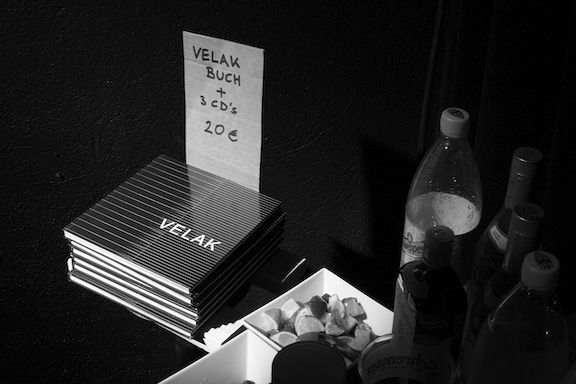 VELAK
BUCH
+
3 CD's
20 €
VELAK